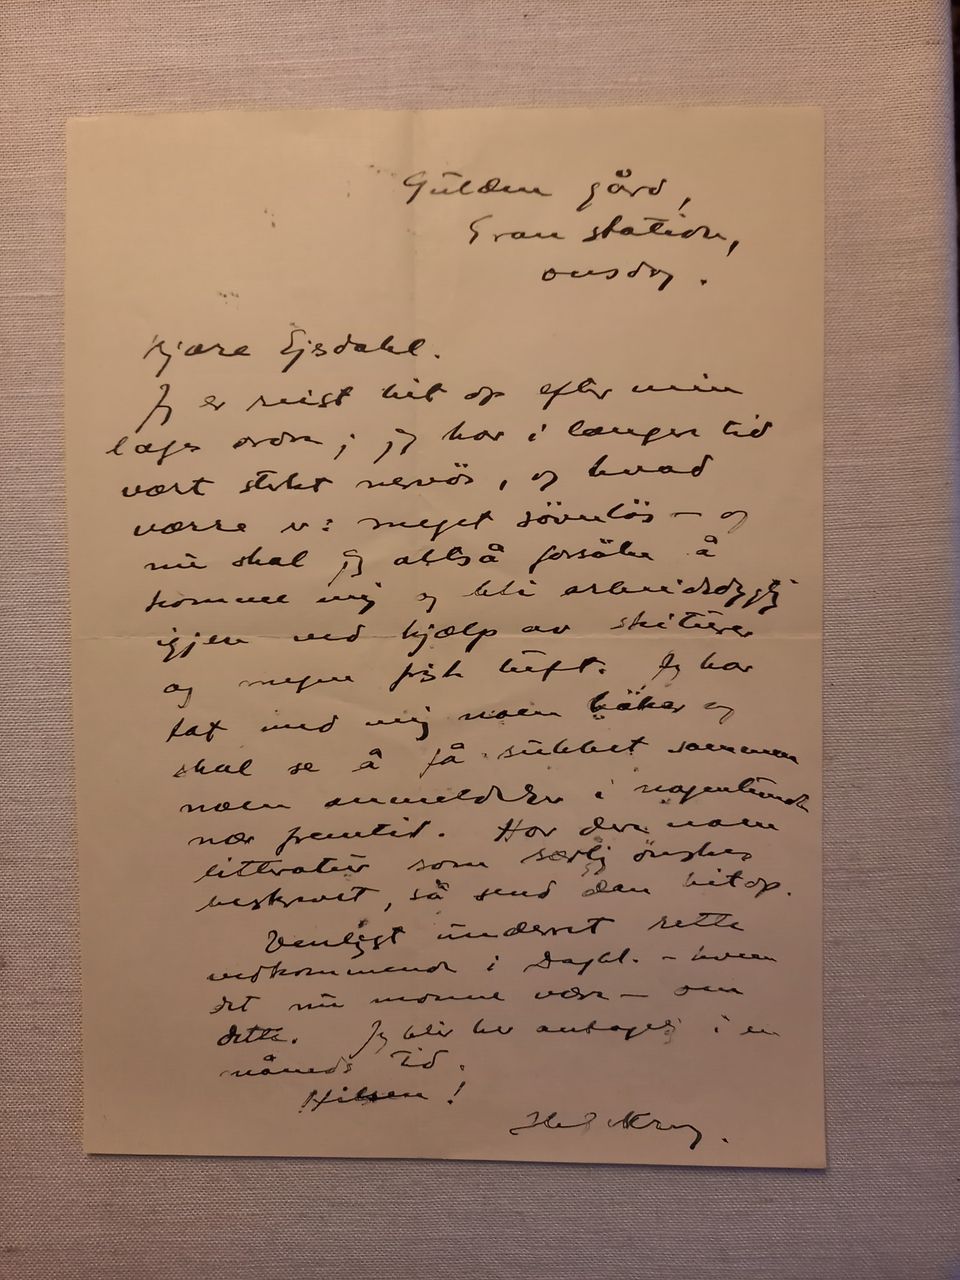 Gulden gård,
Gran station,
onsdag.
Kjære Ejsdahl.
Jeg er reist hit op efter min
læges ordre; jeg har i længere tid
vært sterkt nervøs, og hvad
værre er: meget søvnløs — og
nu skal jeg altså forsøke å
komme mig og bli arbeidsdygtig
igjen ved hjælp av skiturer
og megen frisk luft. Jeg har
tat med mig noen bøker og
skal se å få rublet sammen
noen anmeldelser i nogenlunde
nær fremtid. Har dere noen
litteratur som særlig ønskes
beskrevet, så send den hitop.
Venligst underret rette
vedkommende i Dagbl. — hvem
det nu monne være — om
dette. Jeg blir her antagelig i en
måneds tid.
Hilsen!